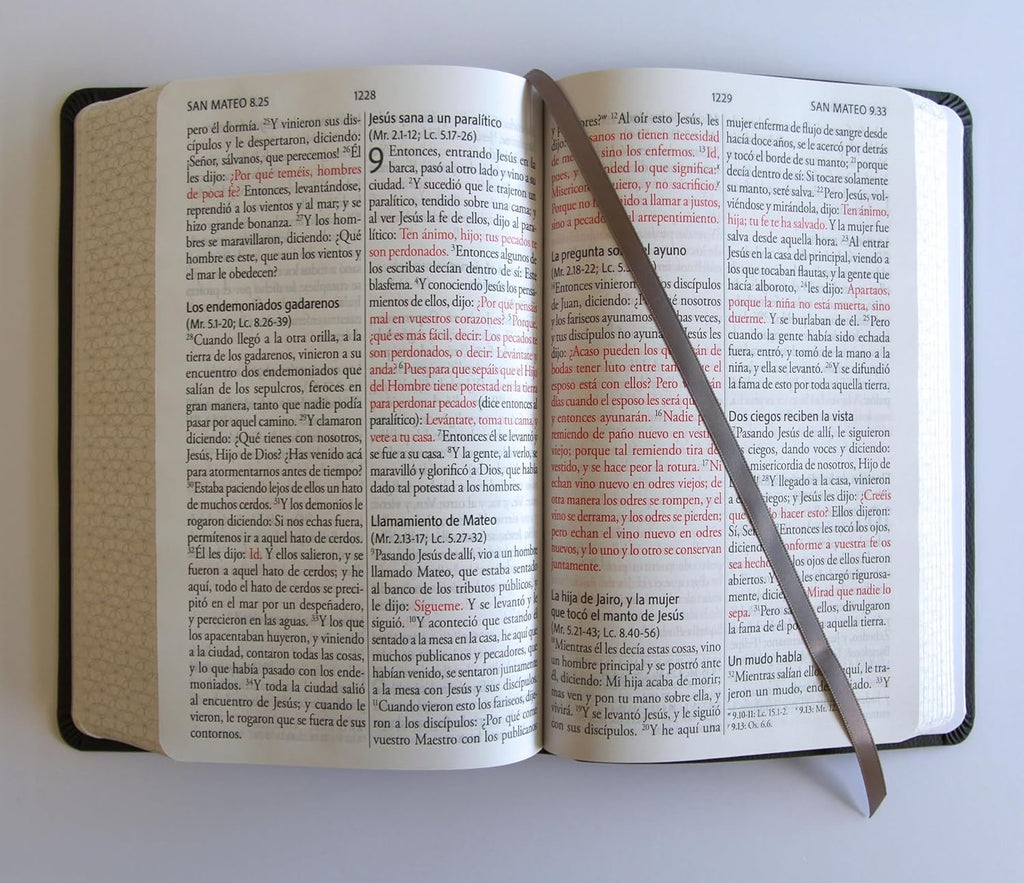 SAN MATEO 8.25
1228
pero él dormía. 25Y vinieron sus dis-
cípulos y le despertaron, diciendo:
¡Señor, sálvanos, que perecemos! 26Él
les dijo: ¿Por qué teméis, hombres
de poca fe? Entonces, levantándose,
reprendió a los vientos y al mar; y se
hizo grande bonanza. 27Y los hom-
bres se maravillaron, diciendo: ¿Qué
hombre es este, que aun los vientos y
el mar le obedecen?
Los endemoniados gadarenos
(Mr. 5.1-20; Lc. 8.26-39)
28Cuando llegó a la otra orilla, a la
tierra de los gadarenos, vinieron a su
encuentro dos endemoniados que
salían de los sepulcros, feroces en
gran manera, tanto que nadie podía
pasar por aquel camino. 29Y clamaron
diciendo: ¿Qué tienes con nosotros,
Jesús, Hijo de Dios? ¿Has venido acá
para atormentarnos antes de tiempo?
30Estaba paciendo lejos de ellos un hato
de muchos cerdos. 31Y los demonios le
rogaron diciendo: Si nos echas fuera,
permítenos ir a aquel hato de cerdos.
32Él les dijo: Id. Y ellos salieron, y se
fueron a aquel hato de cerdos; y he
aquí, todo el hato de cerdos se preci-
pitó en el mar por un despeñadero,
y perecieron en las aguas. 33Y los que
los apacentaban huyeron, y viniendo
a la ciudad, contaron todas las cosas,
y lo que había pasado con los ende-
moniados. 34Y toda la ciudad salió
al encuentro de Jesús; y cuando le
vieron, le rogaron que se fuera de sus
contornos.
Jesús sana a un paralítico
(Mr. 2.1-12; Lc. 5.17-26)
9 Entonces, entrando Jesús en la
barca, pasó al otro lado y vino a su
ciudad. 2Y sucedió que le trajeron un
paralítico, tendido sobre una cama; y
al ver Jesús la fe de ellos, dijo al para-
lítico: Ten ánimo, hijo; tus pecados te
son perdonados. 3Entonces algunos de
los escribas decían dentro de sí: Este
blasfema. 4Y conociendo Jesús los pensa-
mientos de ellos, dijo: ¿Por qué pensáis
mal en vuestros corazones? 5Porque,
¿qué es más fácil, decir: Los pecados te
son perdonados, o decir: Levántate y
anda? 6Pues para que sepáis que el Hijo
del Hombre tiene potestad en la tierra
para perdonar pecados (dice entonces al
paralítico): Levántate, toma tu cama, y
vete a tu casa. 7Entonces él se levantó y
se fue a su casa. 8Y la gente, al verlo, se
maravilló y glorificó a Dios, que había
dado tal potestad a los hombres.
Llamamiento de Mateo
(Mr. 2.13-17; Lc. 5.27-32)
9Pasando Jesús de allí, vio a un hombre
llamado Mateo, que estaba sentado
al banco de los tributos públicos, y
le dijo: Sígueme. Y se levantó y le
siguió. 10Y aconteció que estando él
sentado a la mesa en la casa, he aquí que
muchos publicanos y pecadores, que
habían venido, se sentaron juntamente
a la mesa con Jesús y sus discípulos.
11Cuando vieron esto los fariseos, dije-
ron a los discípulos: ¿Por qué come
vuestro Maestro con los publicanos
1229
SAN MATEO 9.33
12Al oír esto Jesús, les
dijo: sanos no tienen necesidad
de sino los enfermos. 13Id,
pues, y lo que significa:
Misericordia quiero, y no sacrificio.
Porque no he a llamar a justos,
sino a pecadores, al arrepentimiento.
La pregunta sobre el ayuno
(Mr. 2.18-22; Lc.
14Entonces vinieron los discípulos
de Juan, diciendo: ¿Por nosotros
y los fariseos ayunamos muchas veces,
y tus discípulos no ayunan? Jesús les
dijo: ¿Acaso pueden los que están de
bodas tener luto entre tanto que el
esposo está con ellos? Pero vendrán
días cuando el esposo les será
y entonces ayunarán. 16Nadie
remiendo de paño nuevo en vestido
viejo; porque tal remiendo tira del
vestido, y se hace peor la rotura. 17Ni
echan vino nuevo en odres viejos; de
otra manera los odres se rompen, y el
vino se derrama, y los odres se pierden;
pero echan el vino nuevo en odres
nuevos, y lo uno y lo otro se conservan
juntamente.
La hija de Jairo, y la mujer
que tocó el manto de Jesús
(Mr. 5.21-43; Lc. 8.40-56)
18Mientras él les decía estas cosas, vino
un hombre principal y se postró ante
él, diciendo: Mi hija acaba de morir;
mas ven y pon tu mano sobre ella, y
vivirá. 19Y se levantó Jesús, y le siguió
con sus discípulos. 20Y he aquí una
mujer enferma de flujo de sangre desde
hacía doce años, se le acercó por detrás
y tocó el borde de su manto; 21porque
decía dentro de sí: Si tocare solamente
su manto, seré salva. 22Pero Jesús, vol-
viéndose y mirándola, dijo: Ten ánimo,
hija; tu fe te ha salvado. Y la mujer fue
salva desde aquella hora. 23Al entrar
Jesús en la casa del principal, viendo a
los que tocaban flautas, y la gente que
hacía alboroto, 24les dijo: Apartaos,
porque la niña no está muerta, sino
duerme. Y se burlaban de él. 25Pero
cuando la gente había sido echada
fuera, entró, y tomó de la mano a la
niña, y ella se levantó. 26Y se difundió
la fama de esto por toda aquella tierra.
Dos ciegos reciben la vista
27Pasando Jesús de allí, le siguieron
dos ciegos, dando voces y diciendo:
misericordia de nosotros, Hijo de
28Y llegado a la casa, vinieron
ciegos; y Jesús les dijo: ¿Creéis
que hacer esto? Ellos dijeron:
Sí, Entonces les tocó los ojos,
diciendo: Conforme a vuestra fe os
sea hecho. los ojos de ellos fueron
abiertos. Y les encargó rigurosa-
mente, Mirad que nadie lo
sepa. 31Pero ellos, divulgaron
la fama de él por toda aquella tierra.
Un mudo habla
32Mientras salían ellos, aquí, le tra-
jeron un mudo, 33Y
9.10-11: Lc. 15.1-2. 9.13: Mt.
9.13: Os. 6.6.